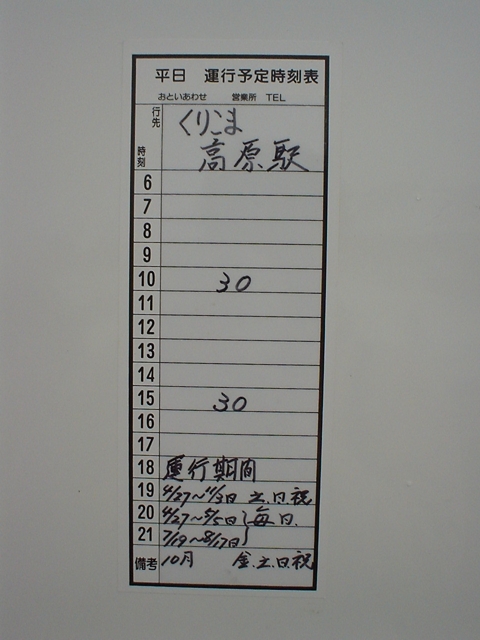 平日 運行予定時刻表
おといあわせ 営業所 TEL
行先 くりこま
時刻 高原駅
6
7
8
9
10 30
11
12
13
14
15 30
16
17
18 運行期間
19 4/27~11/3日 土.日.祝
20 4/27~5/5日}毎日.
21 7/19~8/17日
備考 10月 金.土.日.祝